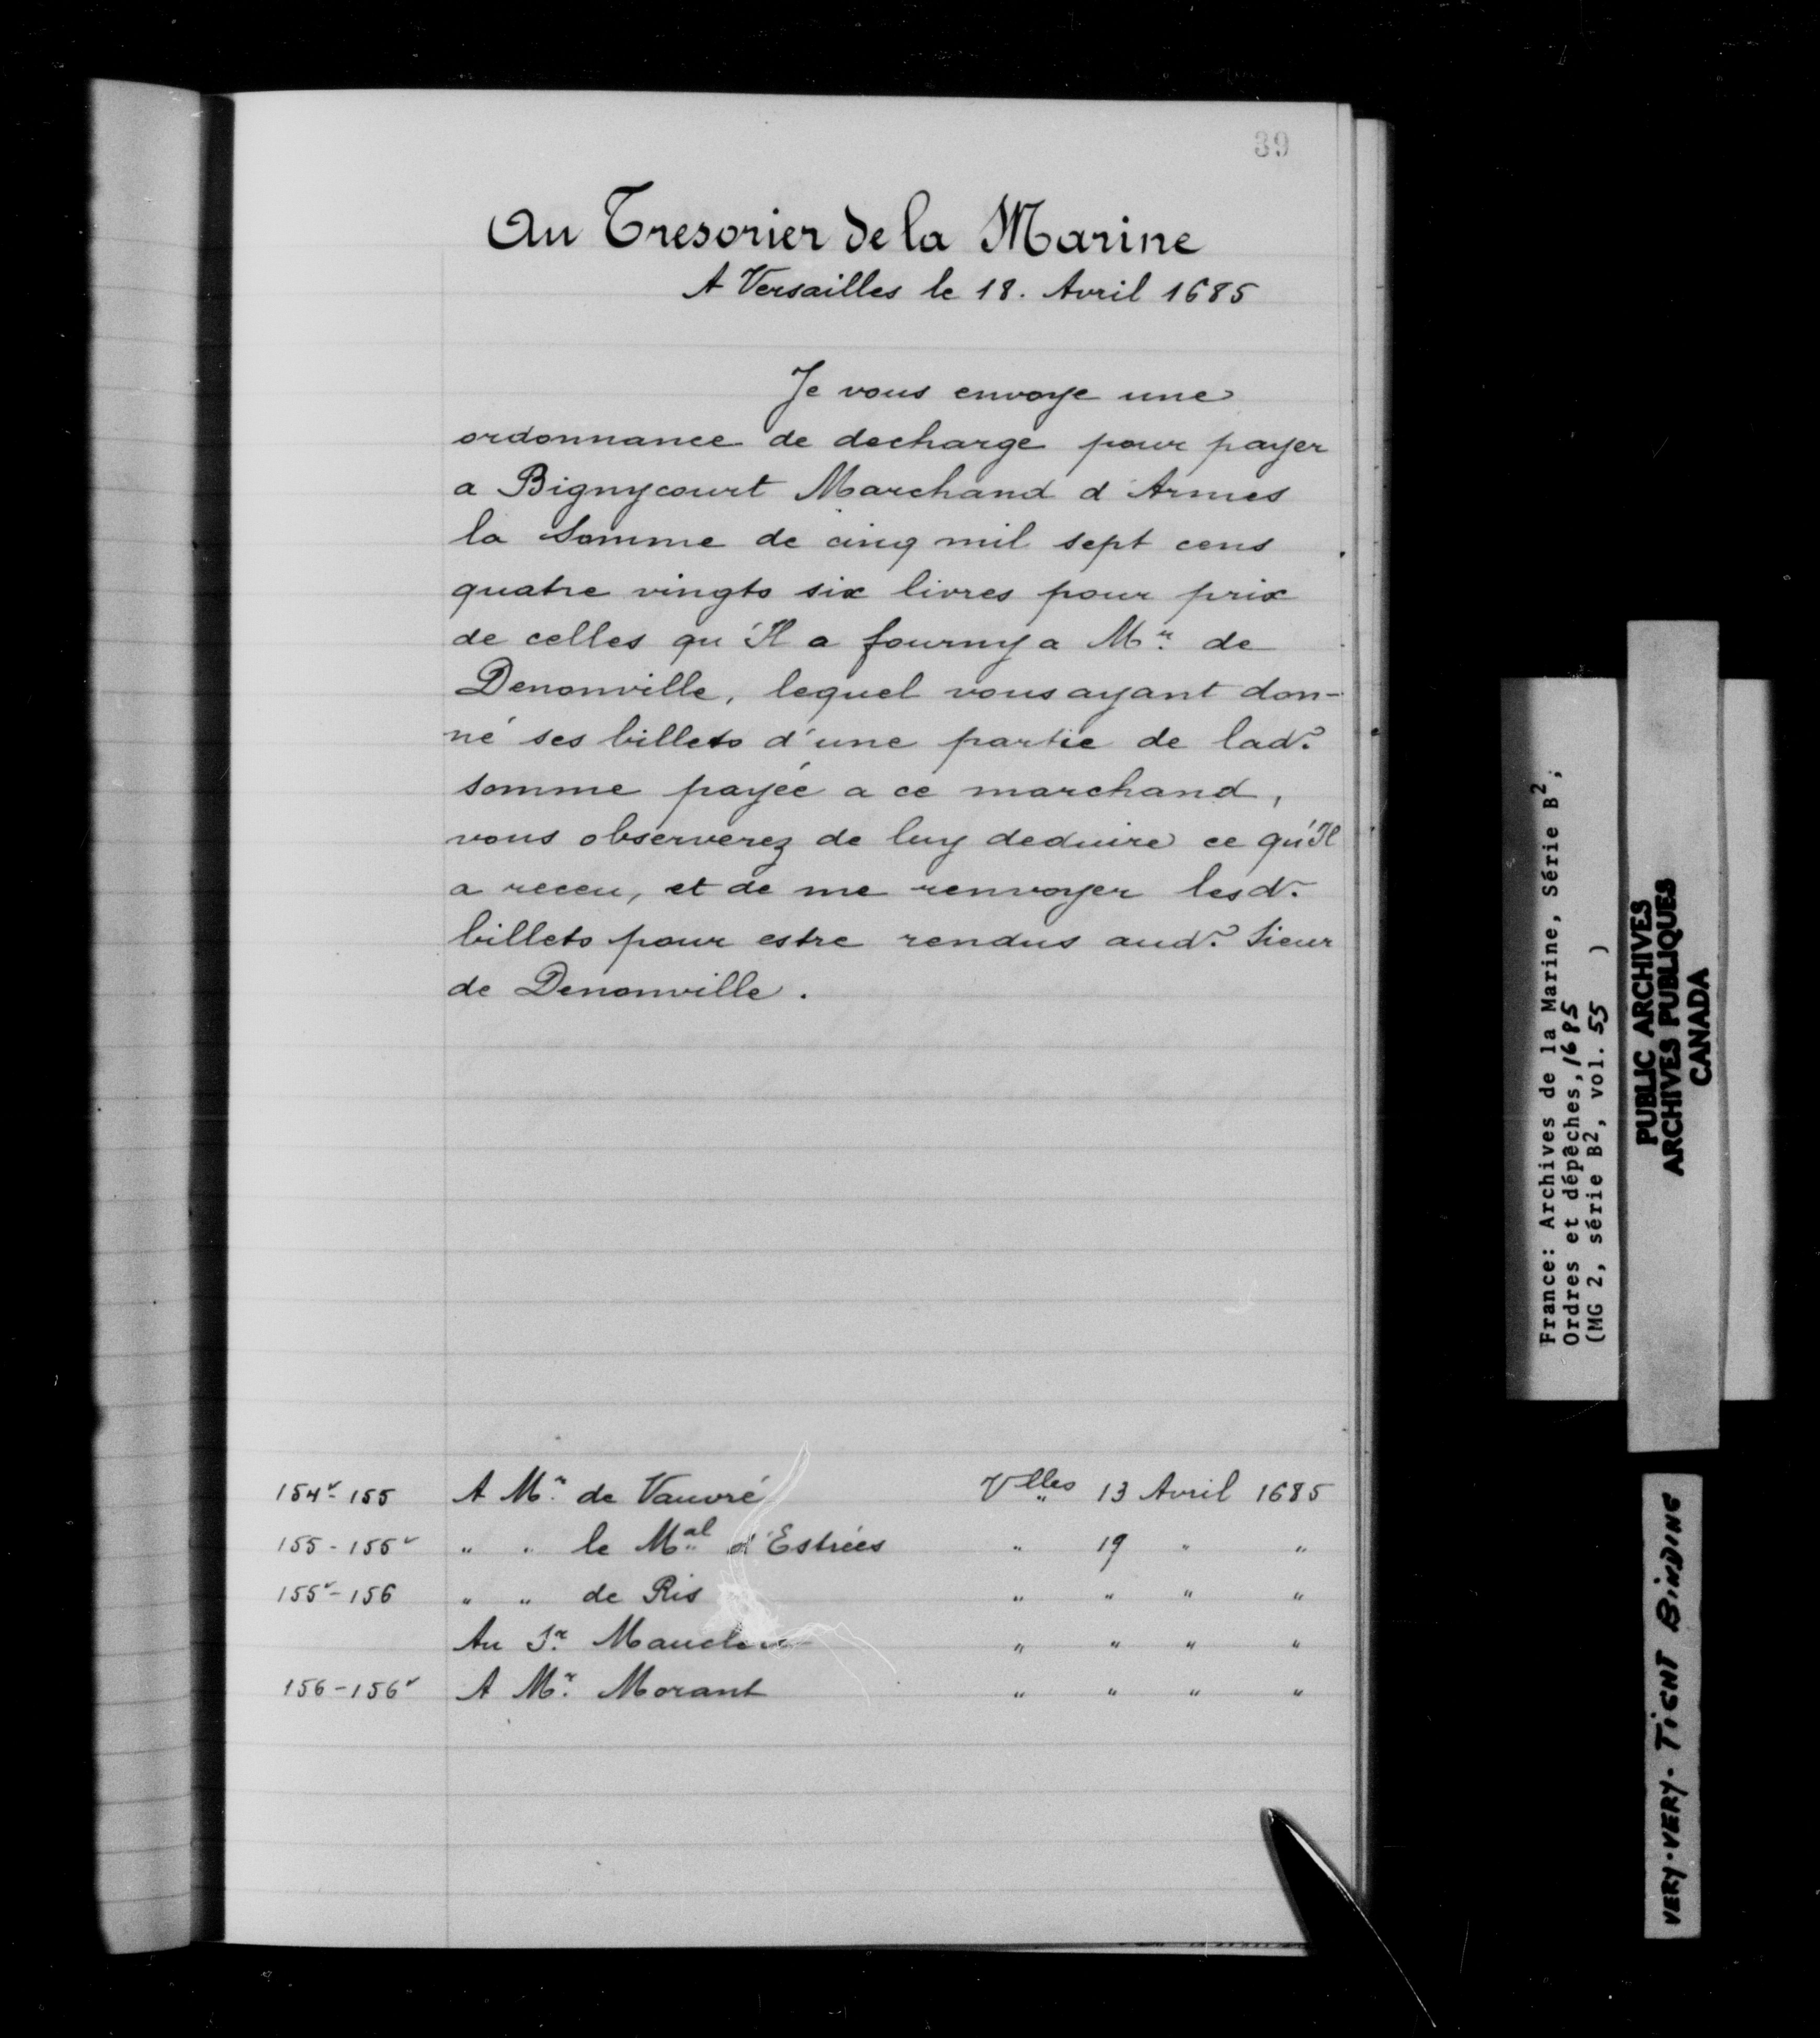 39
Au Tresorier de la Marine
A Versailles le 18. Avril 1685
Je vous envoye une
ordonnance de decharge pour payer
a Bignycourt Marchand d'Armes
la Somme de cinq mil sept cens
quatre vingts six livres pour prix
de celles qu'Il a fourny a Mr. de
Denonville, lequel vous ayant don-
né ses billets d'une partie de lad.
somme payée a ce marchand,
vous observerez de luy deduire ce qu'Il
a receu, et de me renvoyer lesd.
billets pour estre rendus aud. Sieur
de Denonville.
154v-155 A Mr. de Vauvré Vlles 13 Avril 1685
155-155v " " le Mal d'Estrées " 19 " "
155v-156 " " de Ris " " " "
Au Sr. Mauclerc " " " "
156-156v A Mr. Morant " " " "
France: Archives de la Marine, Série B2,
Ordres et dépêches, 1685
(MG 2, série B2, vol. 55 )
PUBLIC ARCHIVES
ARCHIVES PUBLIQUES
CANADA
VERY-VERY-TIGHT BINDING